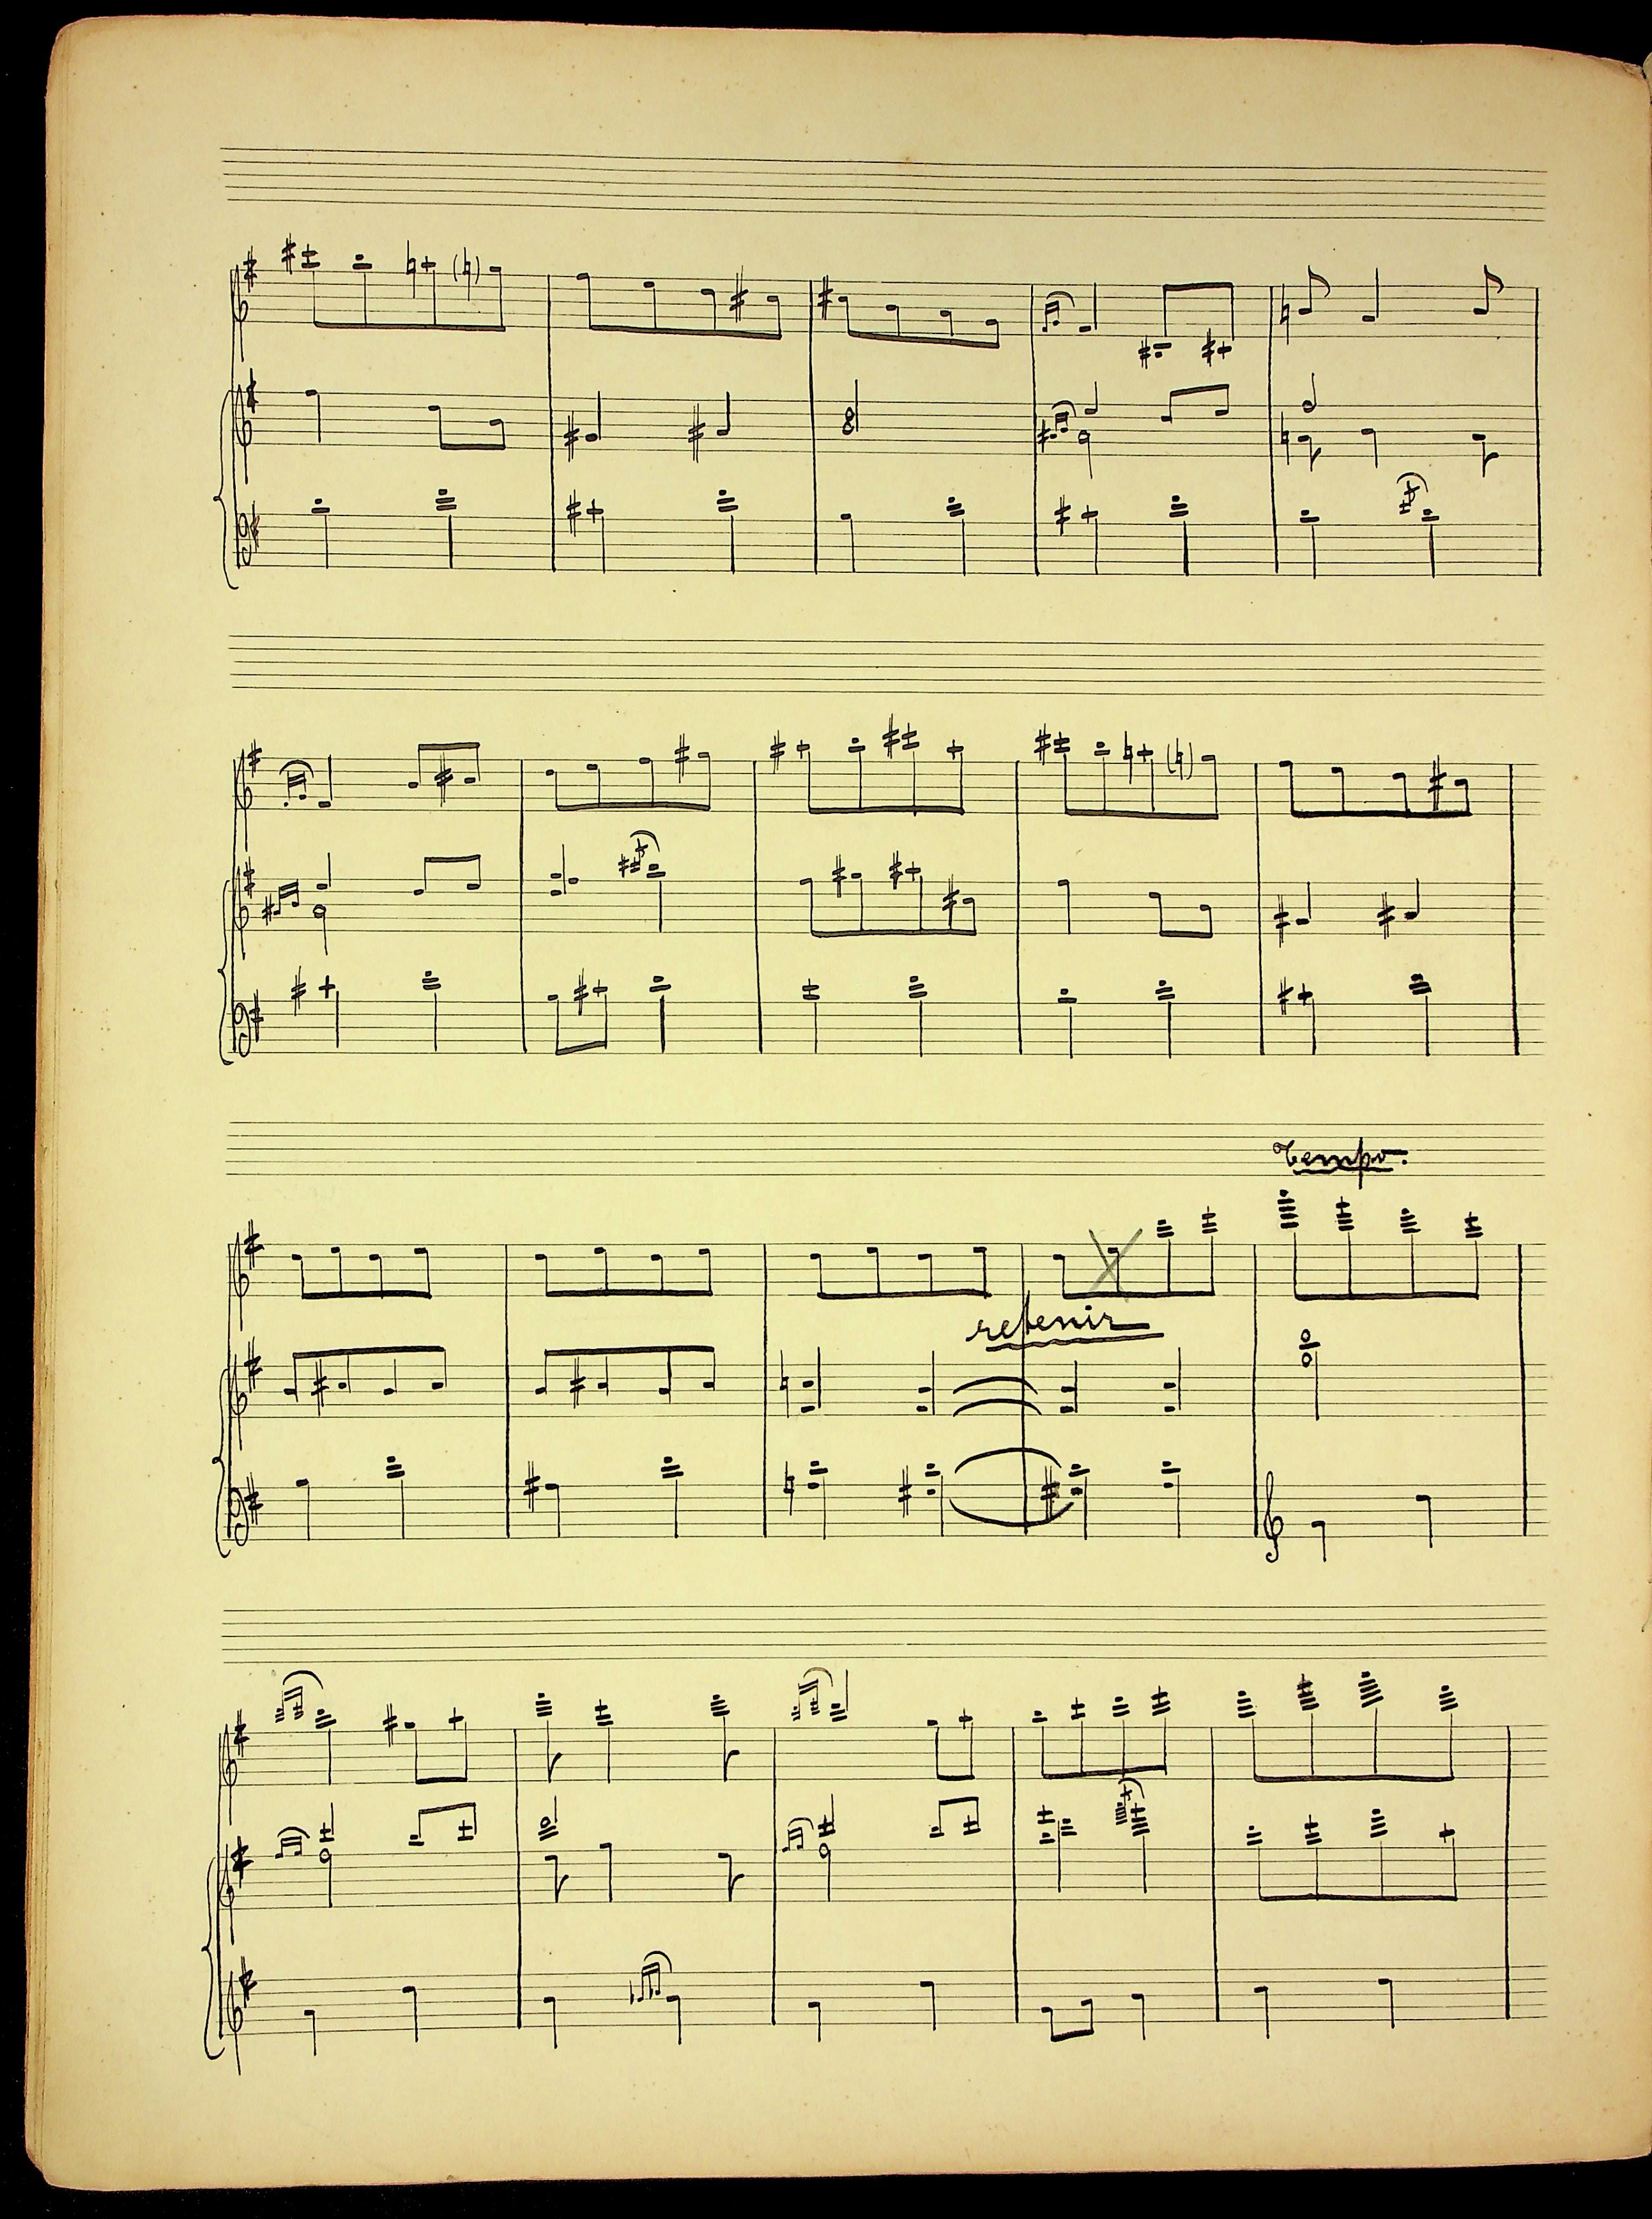 Tempo.
retenir